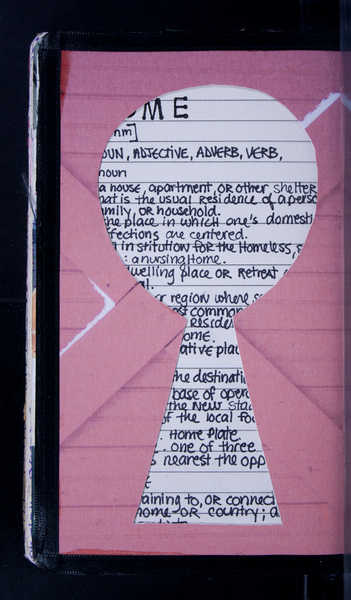 OME
hm]
OUN, ADJECTIVE, ADVERB, VERB,
noun
a house, apartment, OR other shelter
hat is the usual residence of a perso
mily, OR household.
the place in which one's domesti
fections are centered.
n institution for the Homeless, s
: a nursing Home.
welling place OR Retreat
al.
or region where s
ost common
Reside
ome.
ative plac
the destinati
base of oper
the New Sta
of the local foo
. Home Plate.
. one of three
s nearest the opp
aining to, OR connect
home OR country; d